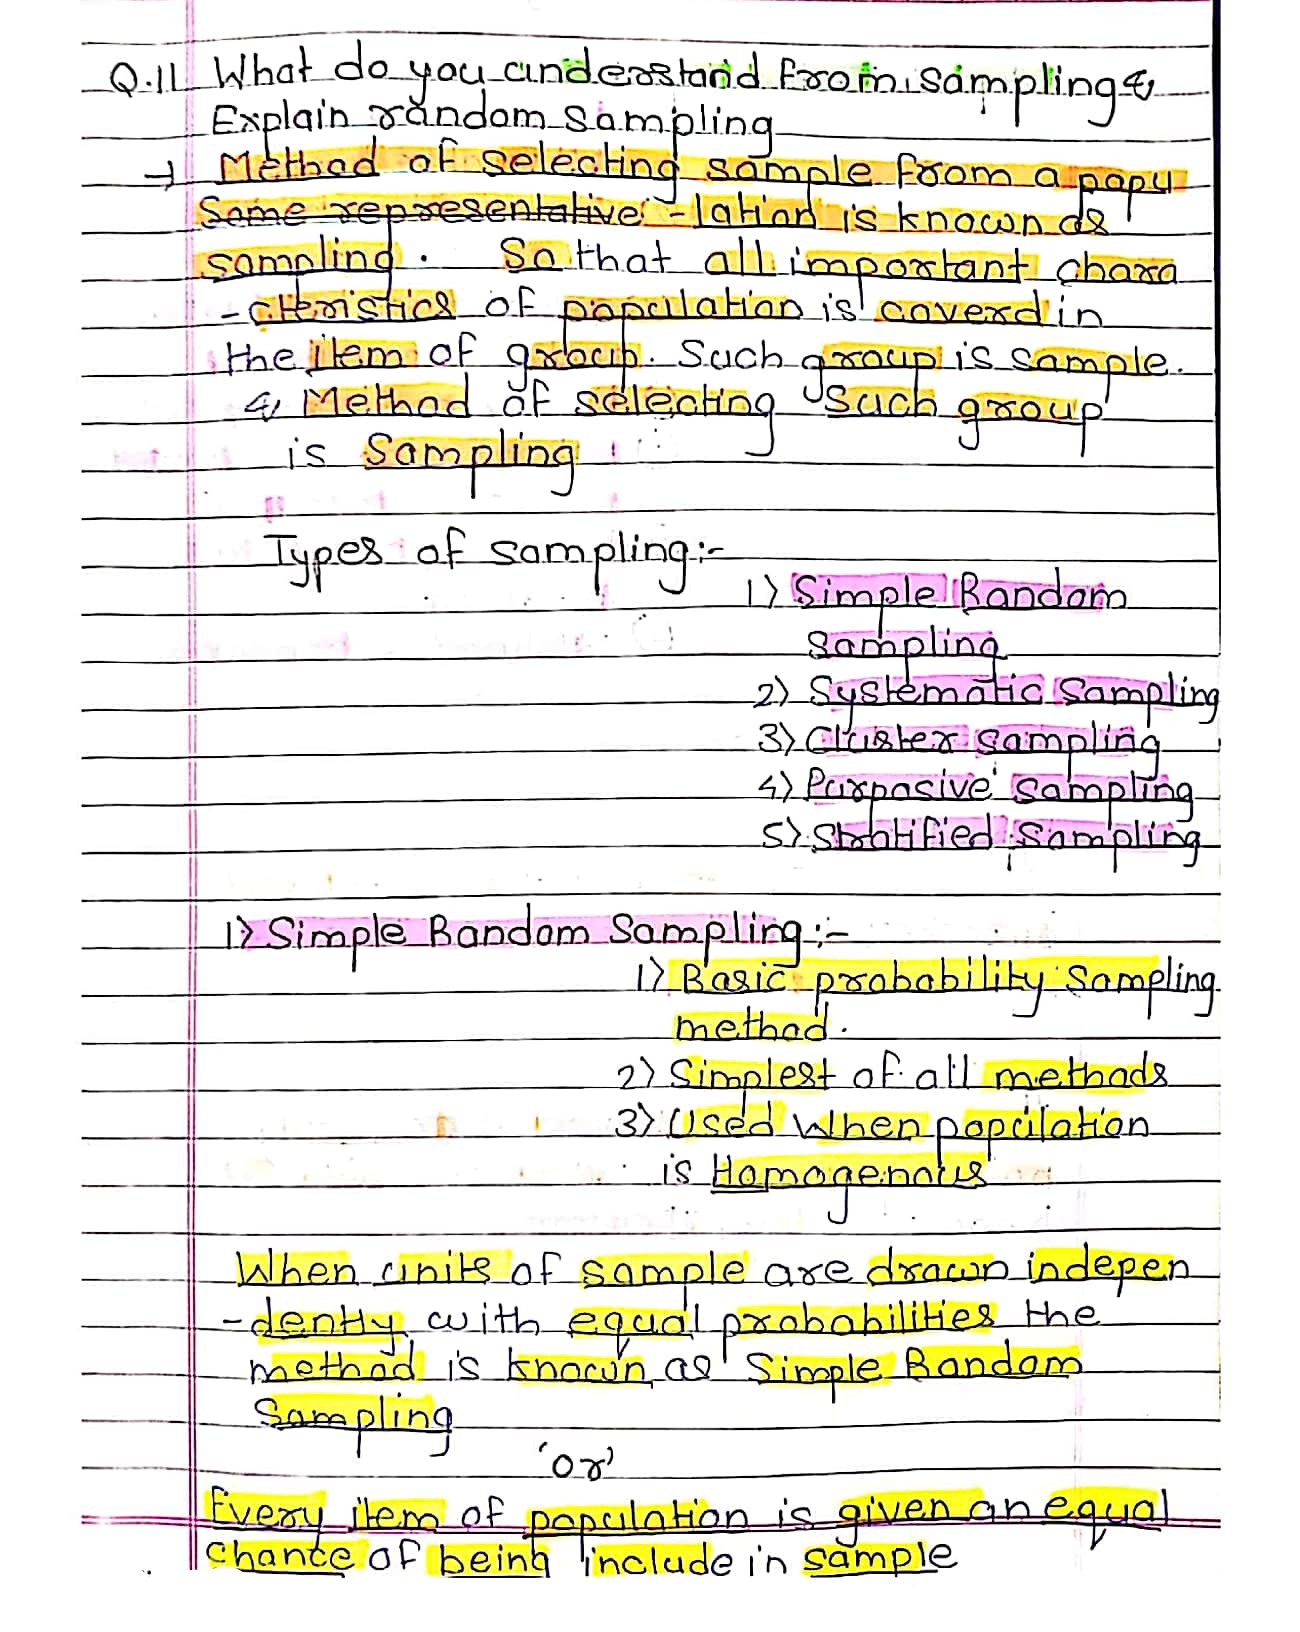 Q.11 What do you understand from sampling &
Explain random sampling
→ Method of selecting sample from a popu
Some representative -lation is known as
sampling. So that all important chara
-cteristics of population is coverd in
the item of group. Such group is sample.
& Method of selecting such group
is Sampling
Types of sampling:-
1) Simple Random
Sampling
2) Systematic Sampling
3) Cluster sampling
4) Purposive sampling
5) Stratified sampling
1) Simple Random Sampling:-
1) Basic probability Sampling
method.
2) Simplest of all methods
3) Used When population
is Homogenous
When units of sample are drawn indepen
-dently with equal probabilities the
method is known as Simple Random
Sampling
'or'
Every item of population is given an equal
chance of being include in sample